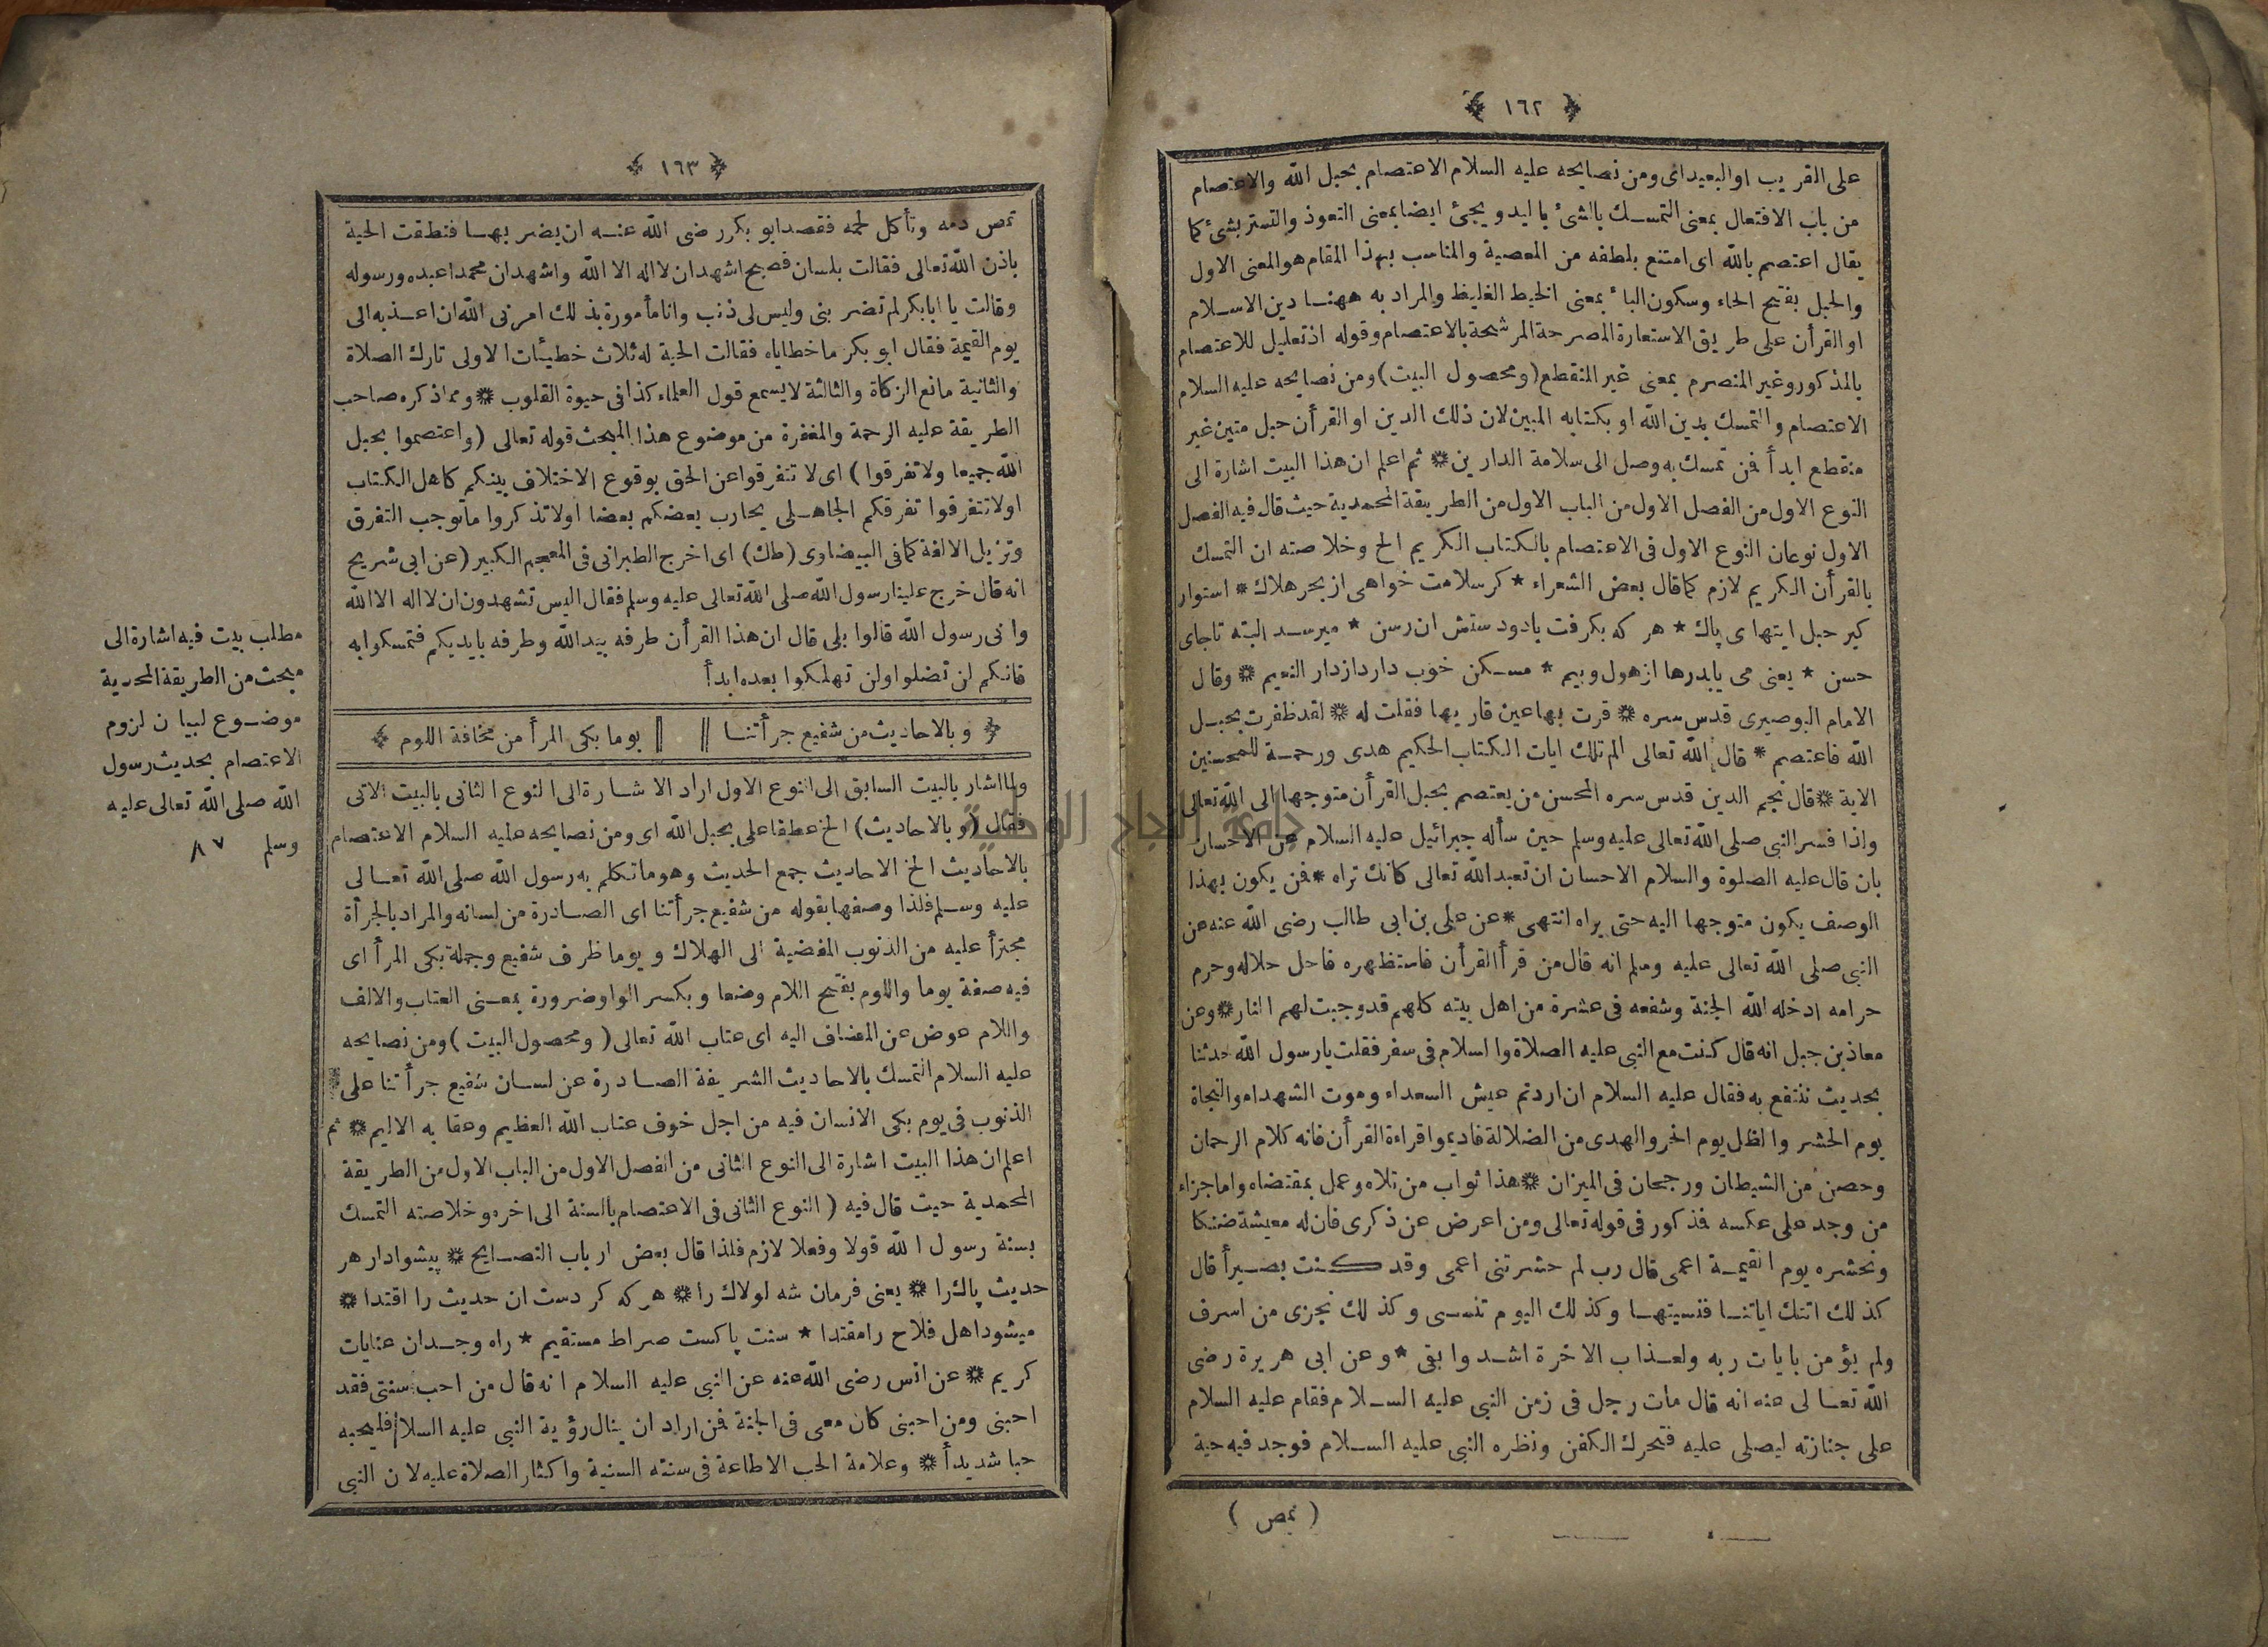 ﴿ ١٦٢ ﴾
على القريب او البعيد اى ومن نصايحه عليه السلام الاعتصام بحبل الله والاعتصام
من باب الافتعال بمعنى التمسك بالشئ باليد ويجئ ايضا بمعنى التعوذ والتستر بشئ كما
يقال اعتصم بالله اى امتنع بلطفه من المعصية والمناسب بهذا المقام هو المعنى الاول
والحبل بفتح الحاء وسكون الباء بمعنى الخيط الغليظ والمراد به ههنا دين الاسلام
او القرأن على طريق الاستعارة المصرحة المرشحة بالاعتصام وقوله اذ تعليل للاعتصام
بالمذكور وغير المنصرم بمعنى غير المنقطع (ومحصول البيت) ومن نصايحه عليه السلام
الاعتصام والتمسك بدين الله او بكتابه المبين لان ذلك الدين او القرأن حبل متين غير
منقطع ابدأ فمن تمسك به وصل الى سلامة الدارين * ثم اعلم ان هذا البيت اشارة الى
النوع الاول من الفصل الاول من الباب الاول من الطريقة المحمدية حيث قال فيه الفصل
الاول نوعان النوع الاول فى الاعتصام بالكتاب الكريم الخ وخلاصته ان التمسك
بالقرأن الكريم لازم كما قال بعض الشعراء * كر سلامت خواهى از بحر هلاك * استوار
كير حبل ايتهاى پاك * هر كه بكرفت يادودستش ان رسن * ميرسد البته تا جاى
حسن * يعنى مى يابد رها از هول وبيم * مسكن خوب دار از دار النعيم * وقال
الامام البوصيرى قدس سره * قرت بها عين قاريها فقلت له * لقد ظفرت بحبل
الله فاعتصم * قال الله تعالى الم تلك ايات الكتاب الحكيم هدى ورحمة للمحسنين
الاية * قال نجم الدين قدس سره المحسن من يعتصم بحبل القرأن متوجها الى الله تعالى
واذا فسر النبى صلى الله تعالى عليه وسلم حين سأله جبرائيل عليه السلام عن الاحسان
بان قال عليه الصلوة والسلام الاحسان ان تعبد الله تعالى كانك تراه * فمن يكون بهذا
الوصف يكون متوجها اليه حتى يراه انتهى * عن على بن ابى طالب رضى الله عنه عن
النبى صلى الله تعالى عليه وسلم انه قال من قرأ القرأن فاستظهره فاحل حلاله وحرم
حرامه ادخله الله الجنة وشفعه فى عشرة من اهل بيته كلهم قد وجبت لهم النار * وعن
معاذ بن جبل انه قال كنت مع النبى عليه الصلاة والسلام فى سفر فقلت يا رسول الله حدثنا
بحديث ننتفع به فقال عليه السلام ان اردتم عيش السعداء وموت الشهداء والنجاة
يوم الحشر والظل يوم الحر والهدى من الضلالة فاديموا قراءة القرأن فانه كلام الرحمان
وحصن من الشيطان ورجحان فى الميزان * هذا ثواب من تلاه وعمل بمقتضاه واما جزاء
من وجد على عكسه فذكور فى قوله تعالى ومن اعرض عن ذكرى فان له معيشة ضنكا
ونحشره يوم القيمة اعمى قال رب لم حشرتنى اعمى وقد كنت بصيرأ قال
كذلك اتتك اياتنا فنسيتها وكذلك اليوم تنسى وكذلك نجزى من اسرف
ولم يؤمن بايات ربه ولعذاب الاخرة اشد وابقى * وعن ابى هريرة رضى
الله تعالى عنه انه قال مات رجل فى زمن النبى عليه السلام فقام عليه السلام
على جنازته ليصلى عليه فتحرك الكفن ونظره النبى عليه السلام فوجد فيه حية
( تمص )
﴿ ١٦٣ ﴾
تمص دمه وتأكل لحمه فقصد ابو بكر رضى الله عنه ان يضر بها فنطقت الحية
باذن الله تعالى فقالت بلسان فصيح اشهد ان لا اله الا الله واشهد ان محمدا عبده ورسوله
وقالت يا ابا بكر لم تضر بنى وليس لى ذنب وانا مأمورة بذلك امرنى الله ان اعذبه الى
يوم القيمة فقال ابو بكر ما خطاياه فقالت الحية له ثلاث خطيئات الاولى تارك الصلاة
والثانية مانع الزكاة والثالثة لا يسمع قول العلماء كذا فى حيوة القلوب * ومما ذكره صاحب
الطريقة عليه الرحمة والمغفرة من موضوع هذا المبحث قوله تعالى (واعتصموا بحبل
الله جميعا ولا تفرقوا) اى لا تتفرقوا عن الحق بوقوع الاختلاف بينكم كاهل الكتاب
او لا تتفرقوا تفرقكم الجاهلى يحارب بعضكم بعضا او لا تذكروا ما يوجب التفرق
وتزيل الالفة كما فى البيضاوى (طك) اى اخرج الطبرانى فى المعجم الكبير (عن ابى شريح
انه قال خرج علينا رسول الله صلى الله تعالى عليه وسلم فقال اليس تشهدون ان لا اله الا الله
وانى رسول الله قالوا بلى قال ان هذا القرأن طرفه بيد الله وطرفه بايديكم فتمسكوا به
فانكم لن تضلوا ولن تهلكوا بعده ابدأ
﴿ وبالاحاديث من شفيع جرأتنا ‖ ‖ يوما بكى المرأ من مخافة اللوم ﴾
ولما اشار بالبيت السابق الى النوع الاول اراد الاشارة الى النوع الثانى بالبيت الاتى
فقال (وبالاحاديث) الخ عطفا على بحبل الله اى ومن نصايحه عليه السلام الاعتصام
بالاحاديث الخ الاحاديث جمع الحديث وهو ما تكلم به رسول الله صلى الله تعالى
عليه وسلم فلذا وصفها بقوله من شفيع جرأتنا اى الصادرة من لسانه والمراد بالجرأة
مجترأ عليه من الذنوب المفضية الى الهلاك ويوما ظرف شفيع وجملة بكى المرأ اى
فيه صفة يوما واللوم بفتح اللام وضعا وبكسر الواو ضرورة بمعنى العتاب والالف
واللام عوض عن المضاف اليه اى عتاب الله تعالى (ومحصول البيت) ومن نصايحه
عليه السلام التمسك بالاحاديث الشريفة الصادرة عن لسان شفيع جرأتنا على
الذنوب فى يوم بكى الانسان فيه من اجل خوف عتاب الله العظيم وعقابه الاليم * ثم
اعلم ان هذا البيت اشارة الى النوع الثانى من الفصل الاول من الباب الاول من الطريقة
المحمدية حيث قال فيه (النوع الثانى فى الاعتصام بالسنة الى اخره وخلاصته التمسك
بسنة رسول الله قولا وفعلا لازم فلذا قال بعض ارباب النصايح * پيشوادار هر
حديث پاك را * يعنى فرمان شه لولاك را * هر كه كر دست ان حديث را اقتدا *
ميشود اهل فلاح را مقتدا * سنت پاكست صراط مستقيم * راه وجدان عنايات
كريم * عن انس رضى الله عنه عن النبى عليه السلام انه قال من احب سنتى فقد
احبنى ومن احبنى كان معى فى الجنة فمن اراد ان ينال رؤية النبى عليه السلام فليحبه
حبا شديدأ * وعلامة الحب الاطاعة فى سنته السنية واكثار الصلاة عليه لان النبى
مطلب بيت فيه اشارة الى
مبحث من الطريقة المحمدية
موضوع لبيان لزوم
الاعتصام بحديث رسول
الله صلى الله تعالى عليه
وسلم ٨٧
جامعة النجاح الوطنية